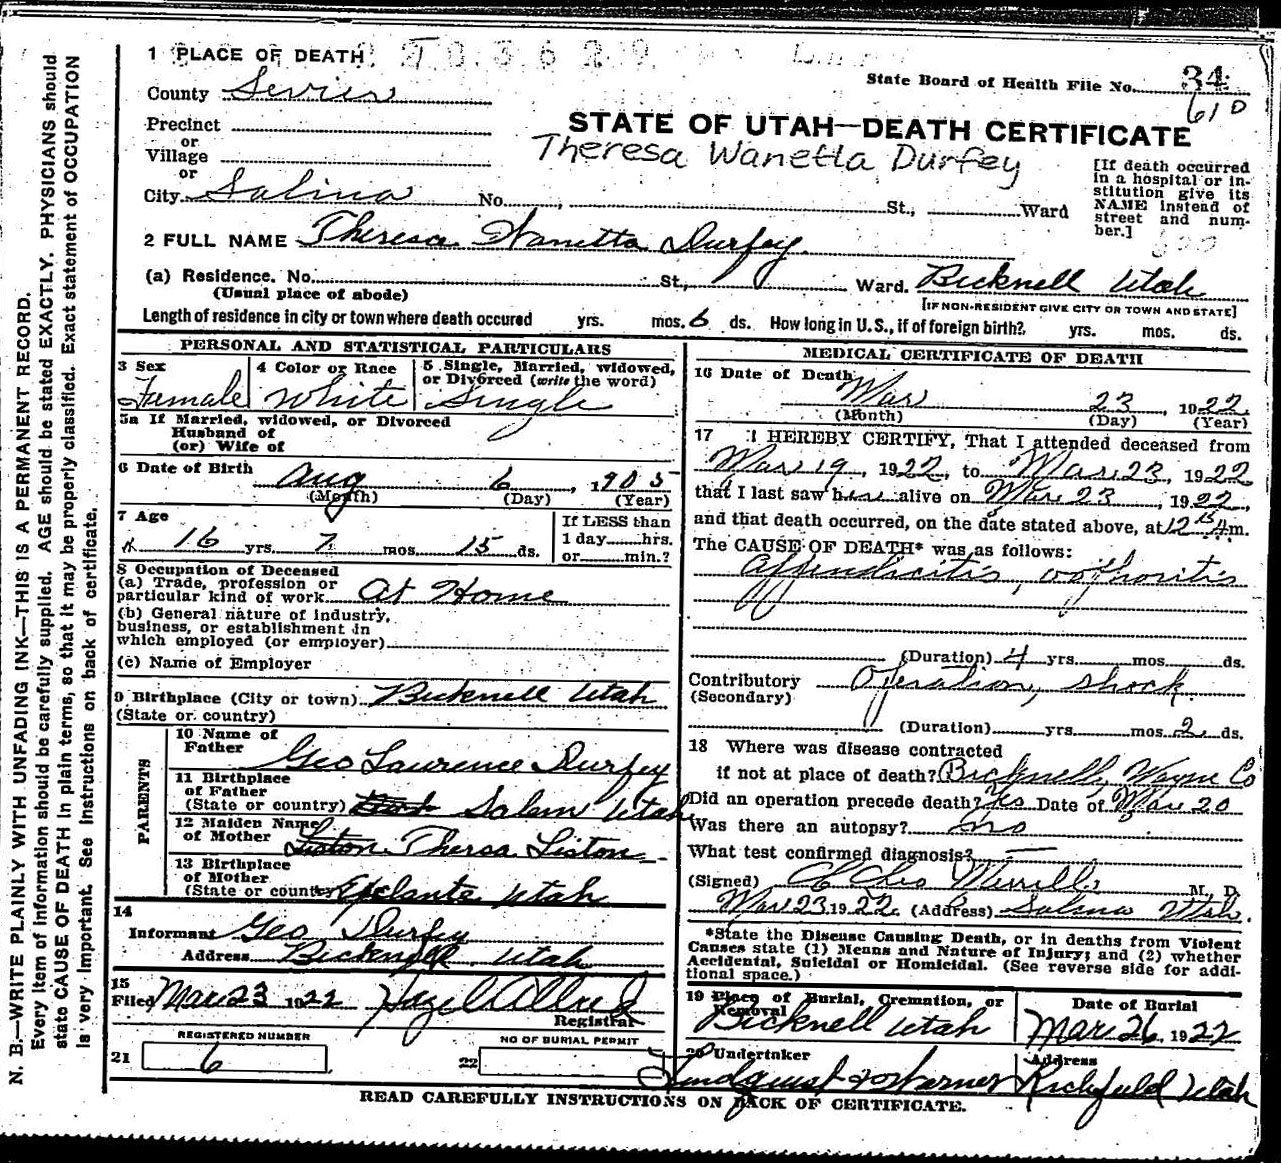 1 PLACE OF DEATH
State Board of Health File No. 34
County Sevier
61D
Precinct
or
STATE OF UTAH—DEATH CERTIFICATE
Village
Theresa Wanetta Durfey
or
[If death occurred in a hospital or institution give its NAME instead of street and number.]
City. Salina No. , St., Ward
2 FULL NAME Theresa Wanetta Durfey
(a) Residence. No. St., Ward. Bicknell Utah
(Usual place of abode) [IF NON-RESIDENT GIVE CITY OR TOWN AND STATE]
Length of residence in city or town where death occured yrs. mos. 6 ds. How long in U.S., if of foreign birth? yrs. mos. ds.
PERSONAL AND STATISTICAL PARTICULARS
3 Sex
Female
4 Color or Race
White
5 Single, Married, widowed,
or Divorced (write the word)
Single
5a If Married, widowed, or Divorced
Husband of
(or) Wife of
6 Date of Birth
Aug 6, 1905
(Month) (Day) (Year)
7 Age
16 yrs. 7 mos. 15 ds.
If LESS than
1 day hrs.
or min.?
8 Occupation of Deceased
(a) Trade, profession or
particular kind of work At Home
(b) General nature of industry,
business, or establishment in
which employed (or employer)
(c) Name of Employer
9 Birthplace (City or town) Bicknell Utah
(State or country)
PARENTS
10 Name of
Father Geo Laurence Durfey
11 Birthplace
of Father
(State or country) Salem Utah
12 Maiden Name
of Mother Liston Thersa Liston
13 Birthplace
of Mother
(State or country) Esclante Utah
14
Informant Geo Durfey
Address Bicknell Utah
15
Filed Mar 23 1922 Hazel Allred
Registrar
REGISTERED NUMBER
21 6
NO OF BURIAL PERMIT
22
MEDICAL CERTIFICATE OF DEATH
16 Date of Death
Mar 23, 1922
(Month) (Day) (Year)
17 I HEREBY CERTIFY, That I attended deceased from
Mar 19, 1922, to Mar 23, 1922
that I last saw her alive on Mar 23, 1922,
and that death occurred, on the date stated above, at 12 15 A m.
The CAUSE OF DEATH* was as follows:
Appendicitis, oophoritis
(Duration) 4 yrs. mos. ds.
Contributory Operation, shock
(Secondary)
(Duration) yrs. mos. 2 ds.
18 Where was disease contracted
if not at place of death? Bicknell, Wayne Co
Did an operation precede death? Yes Date of Mar 20
Was there an autopsy? no
What test confirmed diagnosis? —
(Signed) Merrill M. D.
Mar 23 1922 (Address) Salina Utah.
*State the Disease Causing Death, or in deaths from Violent
Causes state (1) Means and Nature of Injury; and (2) whether
Accidental, Suicidal or Homicidal. (See reverse side for addi-
tional space.)
19 Place of Burial, Cremation, or
Removal
Bicknell Utah
Date of Burial
Mar 26, 1922
20 Undertaker
Address
Richfield Utah
READ CAREFULLY INSTRUCTIONS ON BACK OF CERTIFICATE.
N. B.—WRITE PLAINLY WITH UNFADING INK—THIS IS A PERMANENT RECORD.
Every item of information should be carefully supplied. AGE should be stated EXACTLY. PHYSICIANS should
state CAUSE OF DEATH in plain terms, so that it may be properly classified. Exact statement of OCCUPATION
is very important. See instructions on back of certificate.